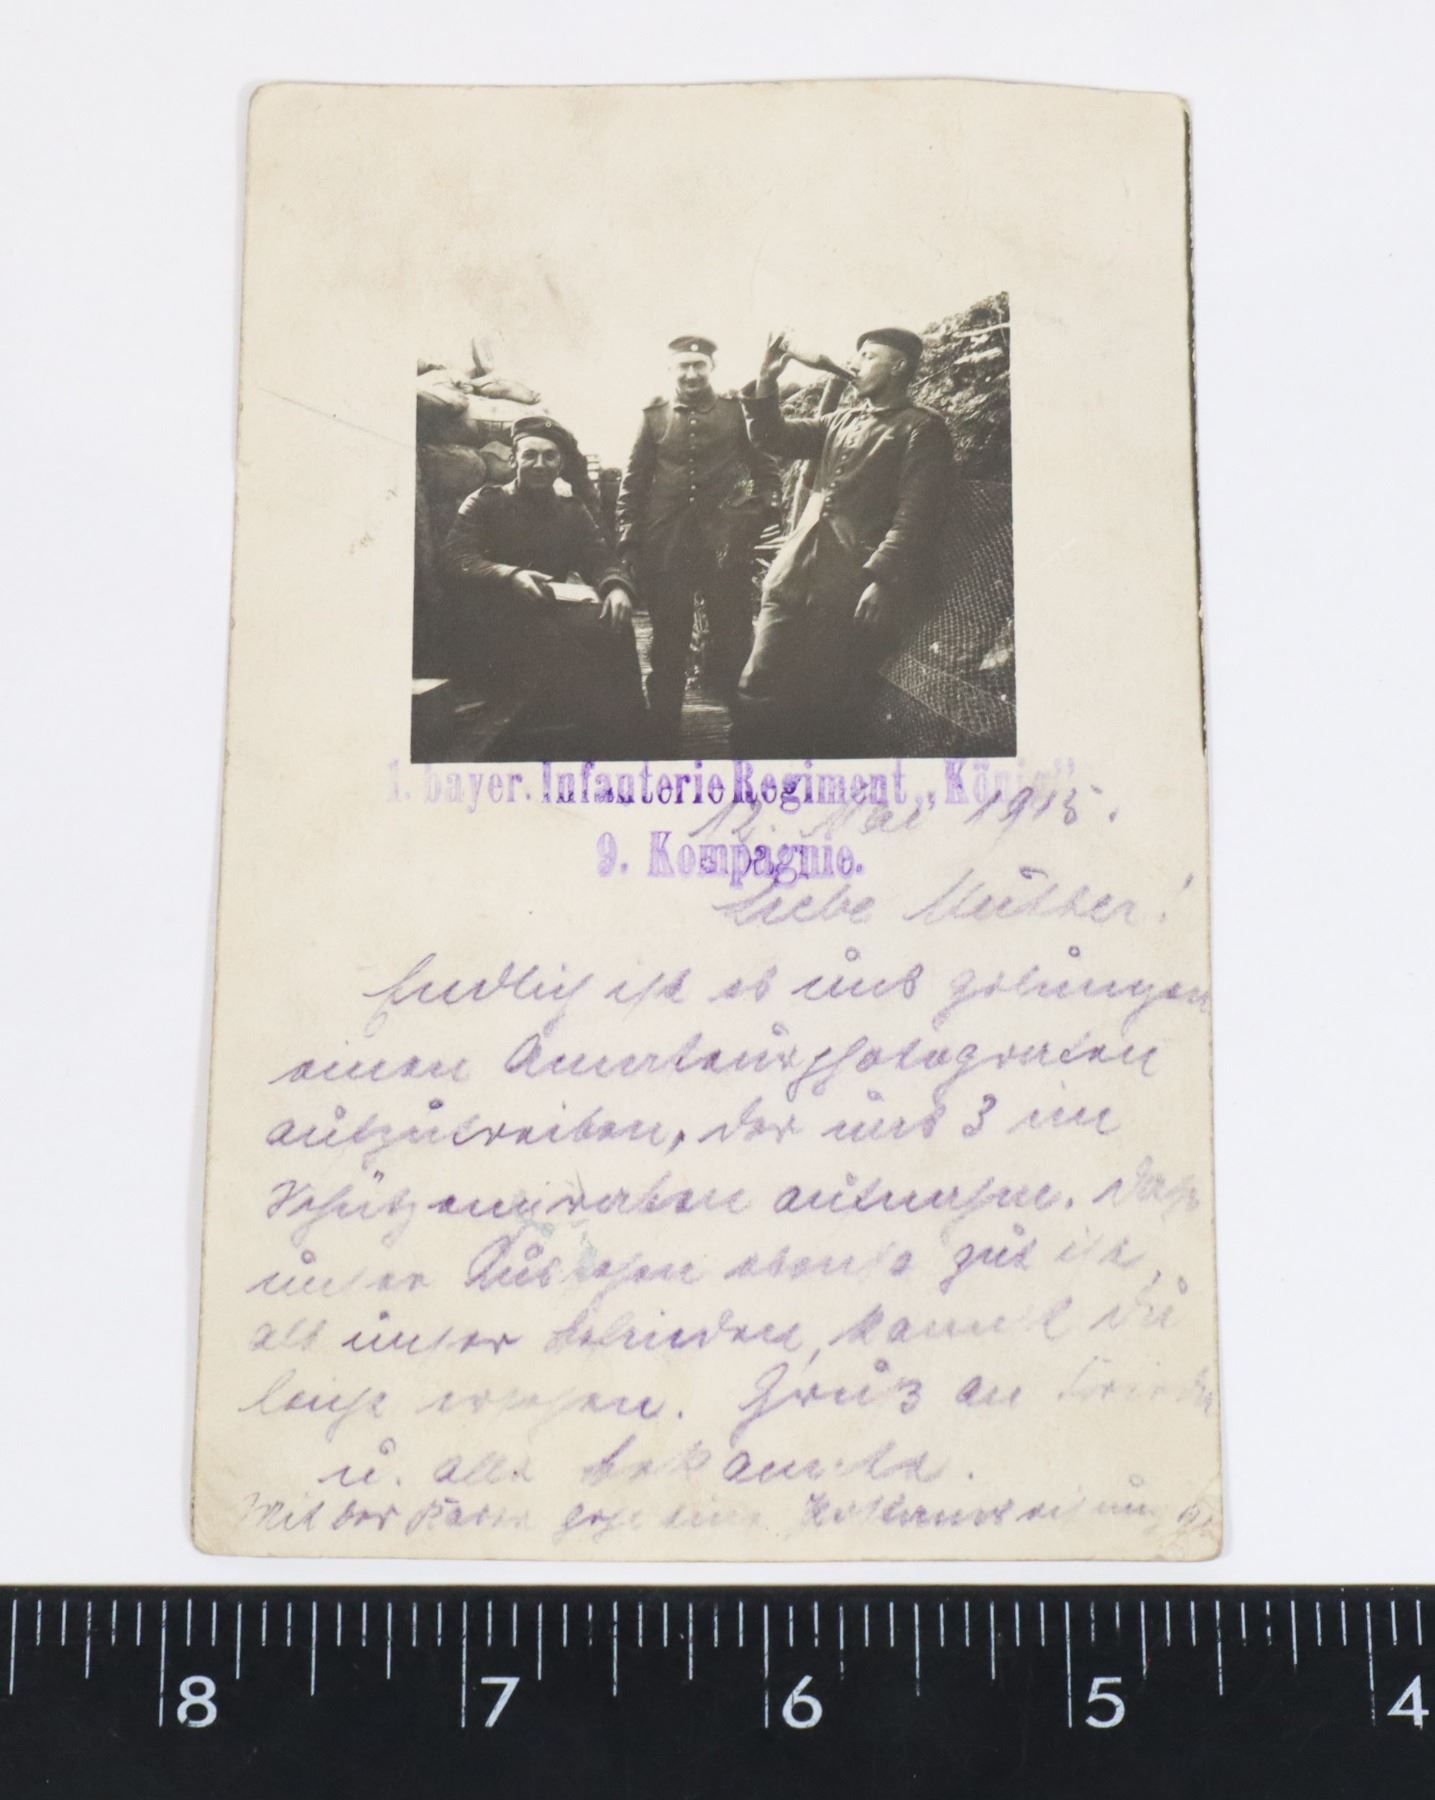 1. bayer. Infanterie Regiment „König”
12. Mai 1915.
9. Kompagnie.
Liebe Mutter!
Endlich ist es uns gelungen
einen Amateurphotografen
aufzutreiben, der uns 3 im
Schützengraben aufnahm. Daß
unser Aussehen ebenso gut ist,
als unser Befinden, kannst Du
leicht ersehen. Gruß an
u. alle Bekannte.
Mit der Karte geht eine
8 7 6 5 4